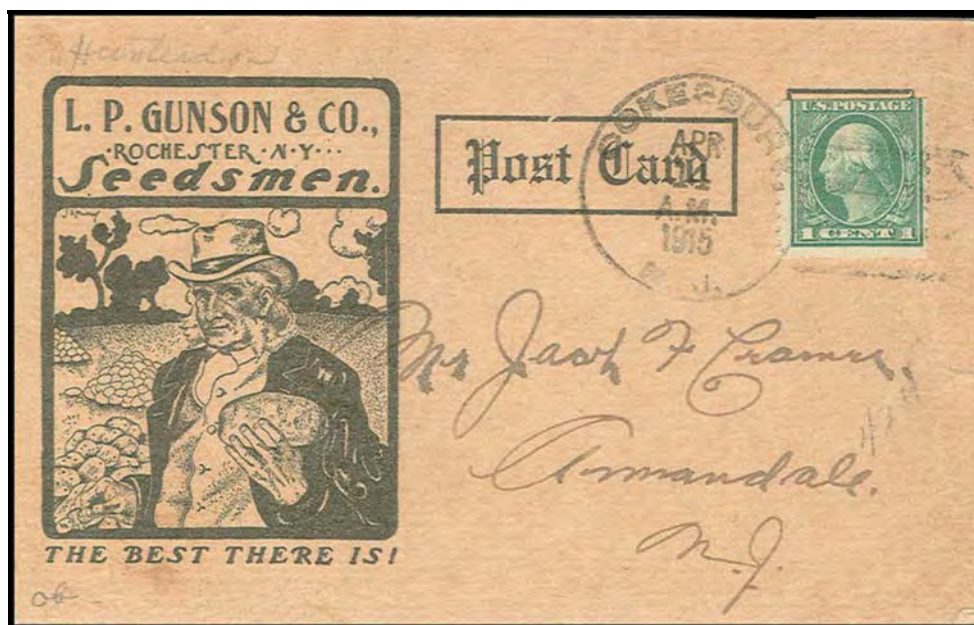 L. P. GUNSON & CO.,
·ROCHESTER·N·Y···
Seedsmen.
THE BEST THERE IS!
Post Card
APR
A.M.
1915
U.S. POSTAGE
1 CENT 1
Mr F Cramer
Annandale.
N.J.